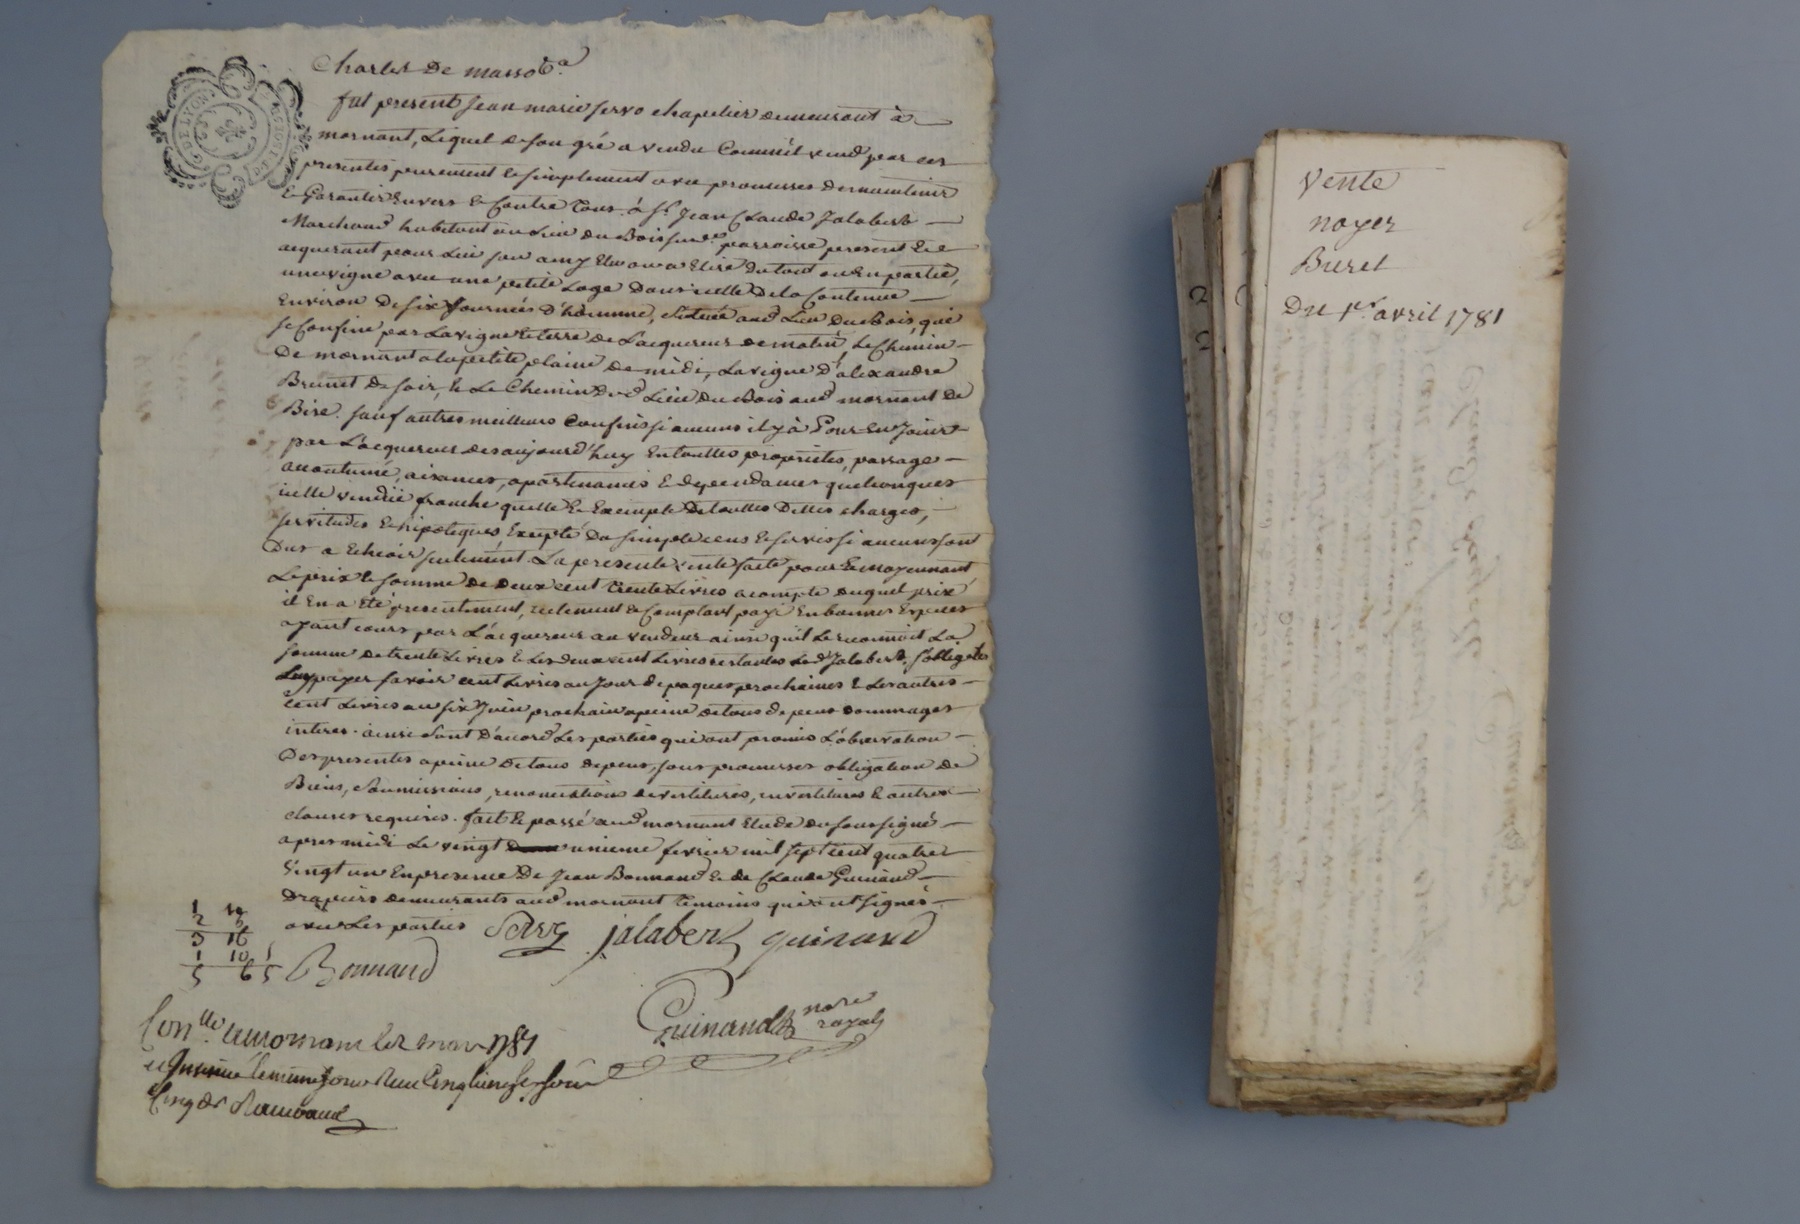 Charles De masso &a
fut present jean marie servo chapelier demeurant à
mornant, Lequel de son gré a vendu Comm'il vend par ces
presentes purement & simplement avec promesses de maintenir
& Garantir Envers & Contre Tous à Sr. Jean Claude Jalabert
Marchand habitant au Lieu du Bois parroisse present &
acquerant pour Lui son amy Elu ou a Elire Du tout ou En partie,
une vigne avec une petite Loge Dans icelle De la Contenue
Environ De six Journés D'homme, située aud Lieu Du Bois, qui
se Confine par La vigne & terre de L'acquereur de matin, Le Chemin
De mornant a la petite plaine de midi, La vigne D'alexandre
Brunet De soir, & Le Chemin dud Lieu du Bois aud mornant De
Bise. sauf autres meilleurs Confins si aucuns il y à Pour En Jouir
par L'acquereur des aujourd'huy En touttes proprietés, passage
accoutumé, aisances, apartenances & dependances quelconques
icelle vendüe franche quitte & Exempte De touttes Dettes charges,
servitudes & hipoteques, Excepté Du simple cens & servis si aucuns sont
Dus a Echeoir seulement. La presente vente faite pour & moyennant
Le prix & somme de Deux cent trente Livres acompte duquel prix
il En a Eté presentement, reelement & Comptant payé En bonnes Especes
ayant cours par L'acquereur au vendeur ainsi qu'il Le reconnoit La
somme de trente Livres & Les deux cent Livres restantes Led Jalabert s'oblige de
Luy payer savoir cent Livres au Jour de paques prochaines & Les autres
cent Livres au six Juin prochain a peine de tous depens dommages
interes. ainsi sont D'accord Les parties qui ont promis L'observation
Des presentes a peine De tous depens, sous promesses obligation de
Biens, soumissions, renonciations devestitures, investitures & autres
clauses requises. fait & passé aud mornant Etude du soussigné
apres midi Le vingt unieme fevrier mil sept cent quatre
vingt un En presence De Jean Bonnand & de Claude Guinand
Drapiers demeurants aud mornant temoins qui ont signés
avec Les parties Servo jalabert guinand
Bonnand
Guinand nore
royal
Con.lle a mornant le 2 mars 1781
Vente
noyer
Buret
Du 1er avril 1781